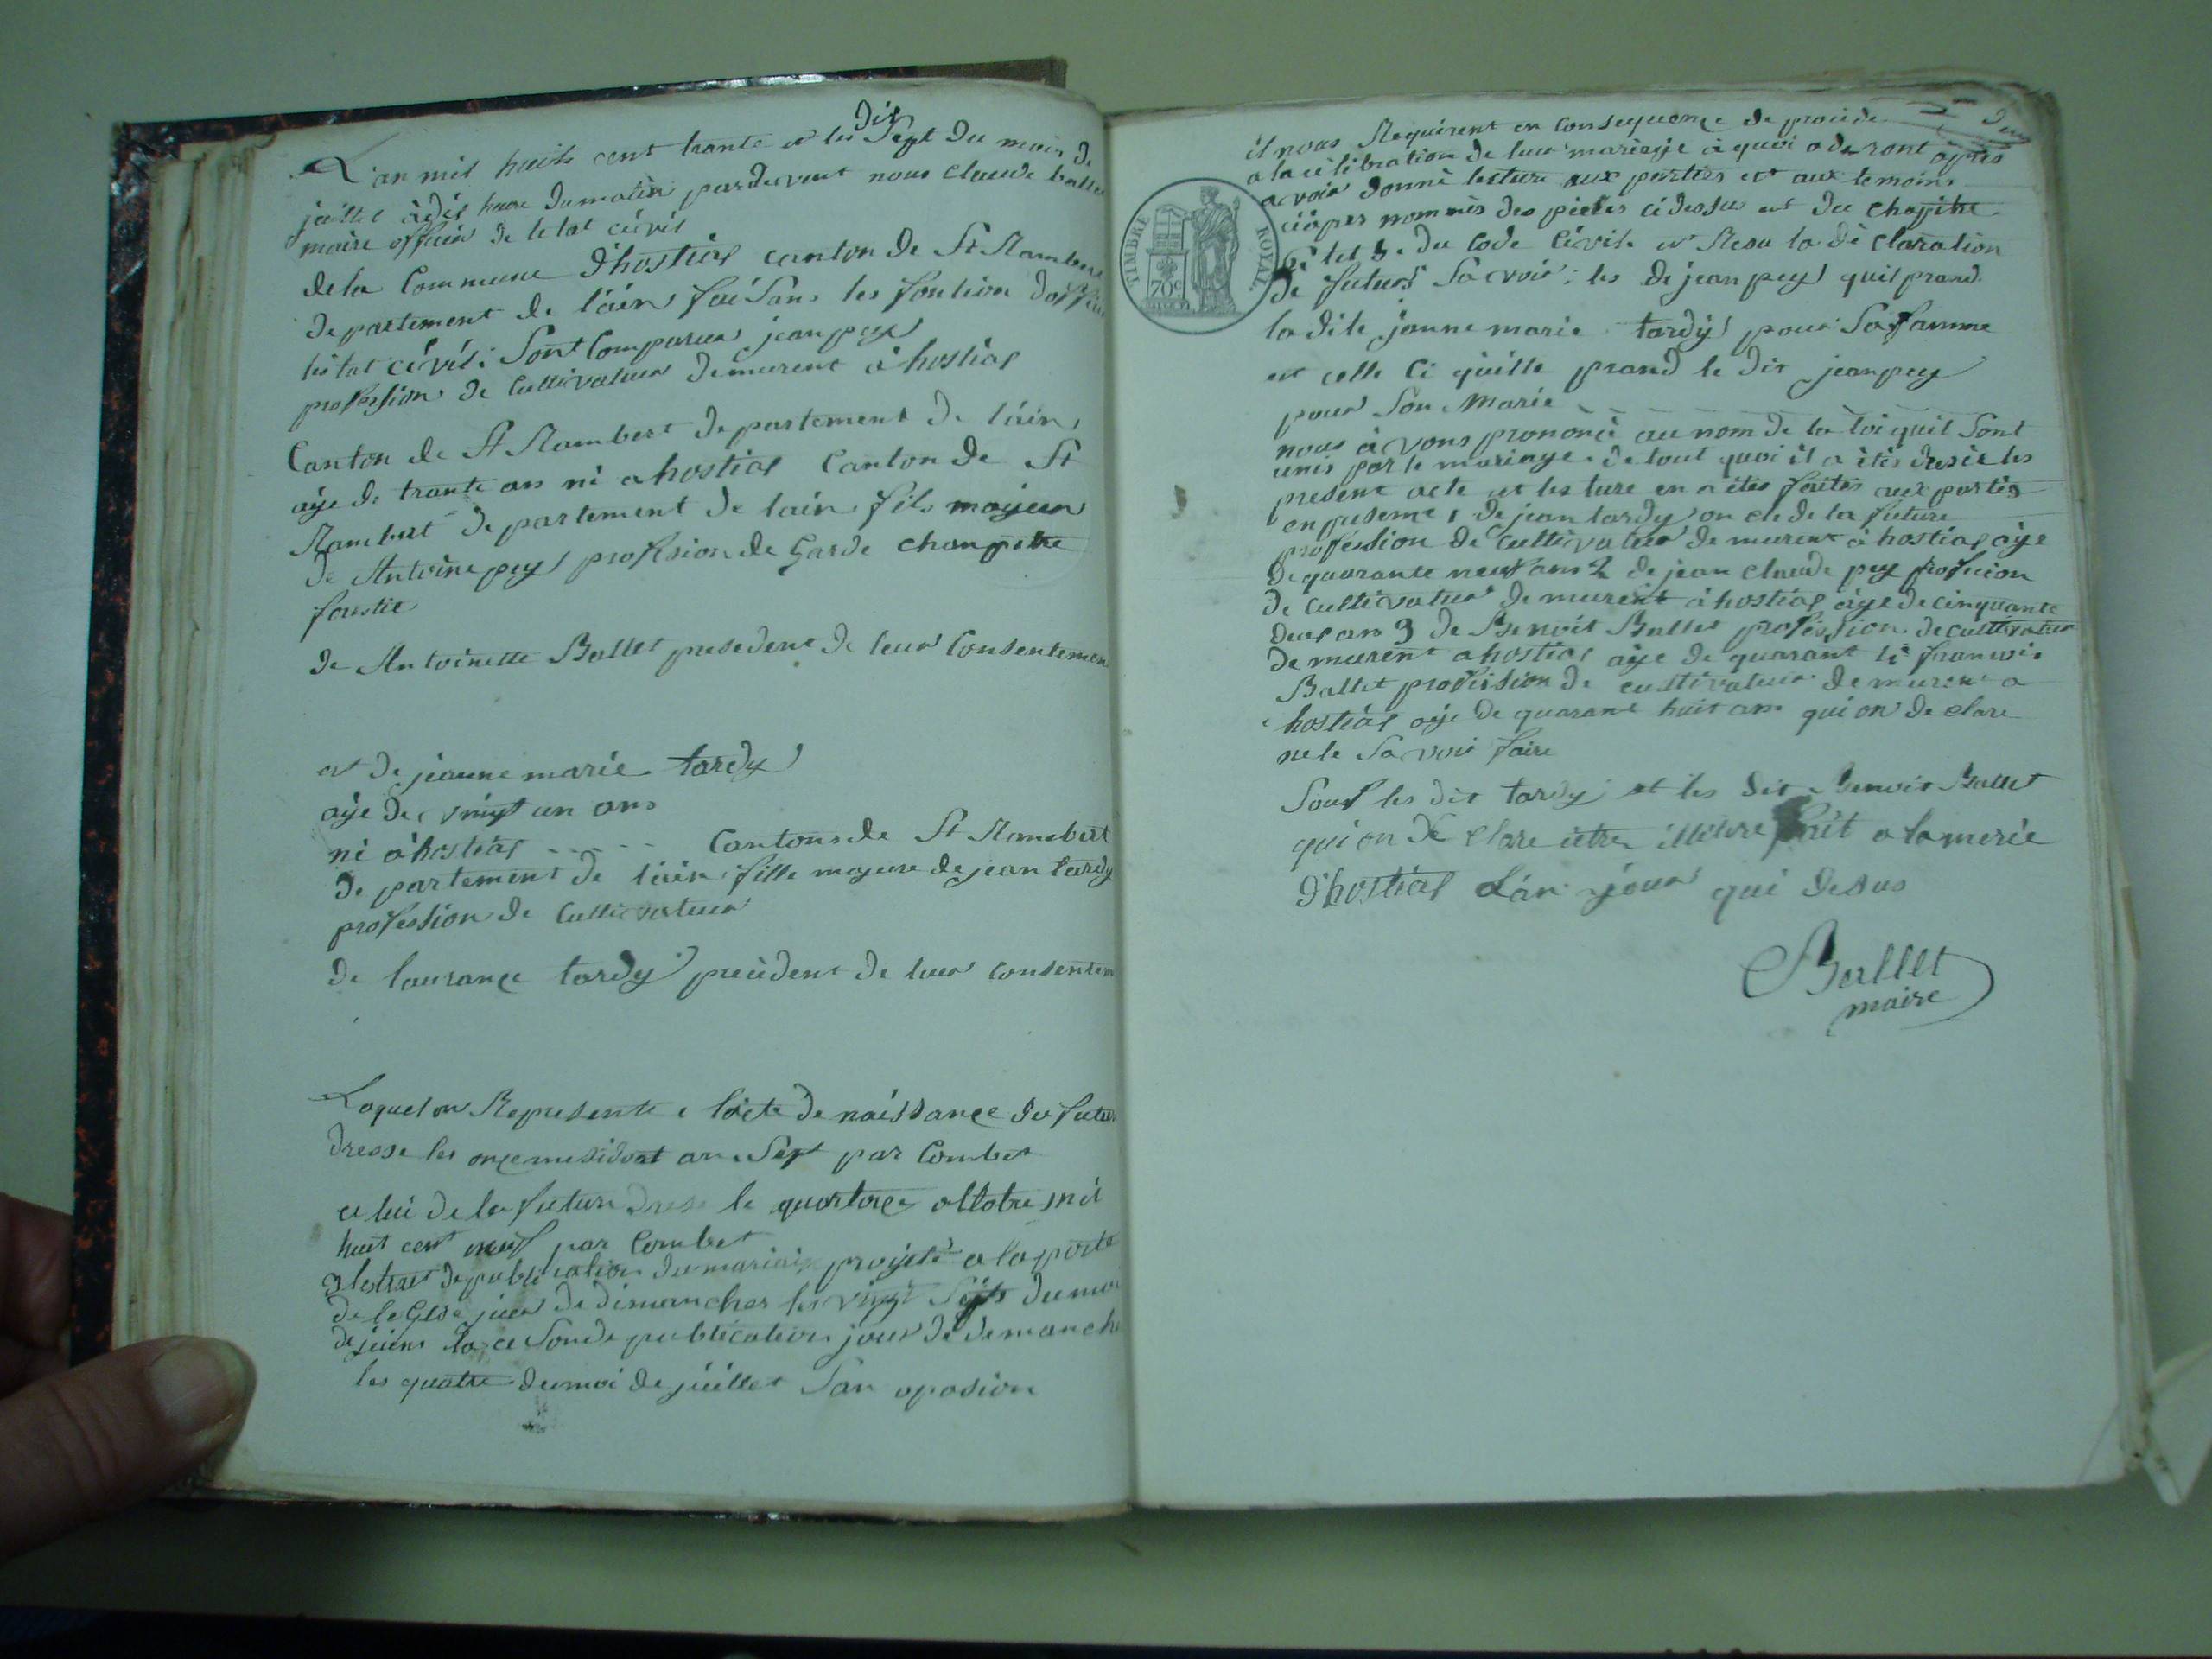 L'an mil huits cent trante et les dix Sept du mois de
juillet à dix heure du matin pardevent nous Claude ballet
maire officié de letat cívil
de la Commune d'hostias canton de St Rambert
departement de l'ain faisans les fontion
letat cívil Sont Comparus jean pey
profession de Cultivateur demurent à hostias
Canton de St Rambert departement de l'ain
aÿe de trante ans né a hostias Canton de St
Rambert departement de lain fils majeur
de Antoine pey profession de Garde Champetre
foustié
de Antoinette Ballet presedent de leur Consentement
et de jeanne marie tardy
aÿe de vingt un ans
né à hostias Canton de St Rambert
departement de l'ain fille majeure de jean tardy
profession de Cultivateur
de laurance tardy precedent de leur consentem
Laquel on Represente lacte de naissance du futur
dresse les onze messidort an Sept par Combet
ce lui de la future dresé le quartorze octobre mil
huit cent neuf par Combet
3 lextrait de publication du mariaje projeté a la porte
de leglise jour de dimanches les vingt Sept du moi
de juiens la ce Sonde publication jour de demanche
les quatre du moi de juillet San oposion
il nous Requirent en Consequence de procéde
a la célébration de leur mariaje à quoi aderont apres
avoir donné lecture aux parties et aux temoins
ciapres nommés des pieces cidessu et du chapitre
6 du Code Cívil et Resu la déclaration
de futurs Savoir : les de jean pey quil prand
la dite janne marie tardy pour Sa famme
et celle ci quille prand le dit jean pey
pour Son Marie
nous avons prononcé au nom de la loi quil Sont
unis par le mariaye de tout quoi il a étés dressé les
present acte et lecture en a étés faites aux partis
en preseme 1 de jean tardy oncle de la future
profession de Cultivateur demurent à hostias aÿe
de quarante neuf ans 2 de jean claude pey profecion
de Cultivateur demurent à hostias aÿe de cinquante
deux ans 3 de Benoit Ballet profession de cultivateur
demurent a hostias aÿe de quarant 4 francois
Ballet profession de cultivateur demurent a
hostias aÿe de quarant huit ans qui on declare
ne le Savoir faire
Sauf les dit tardy et les dit Benoit Ballet
qui on declare etre illitere fait a la merie
d'hostias L'an jour qui desus
Ballet
maire
TIMBRE ROYAL
70c